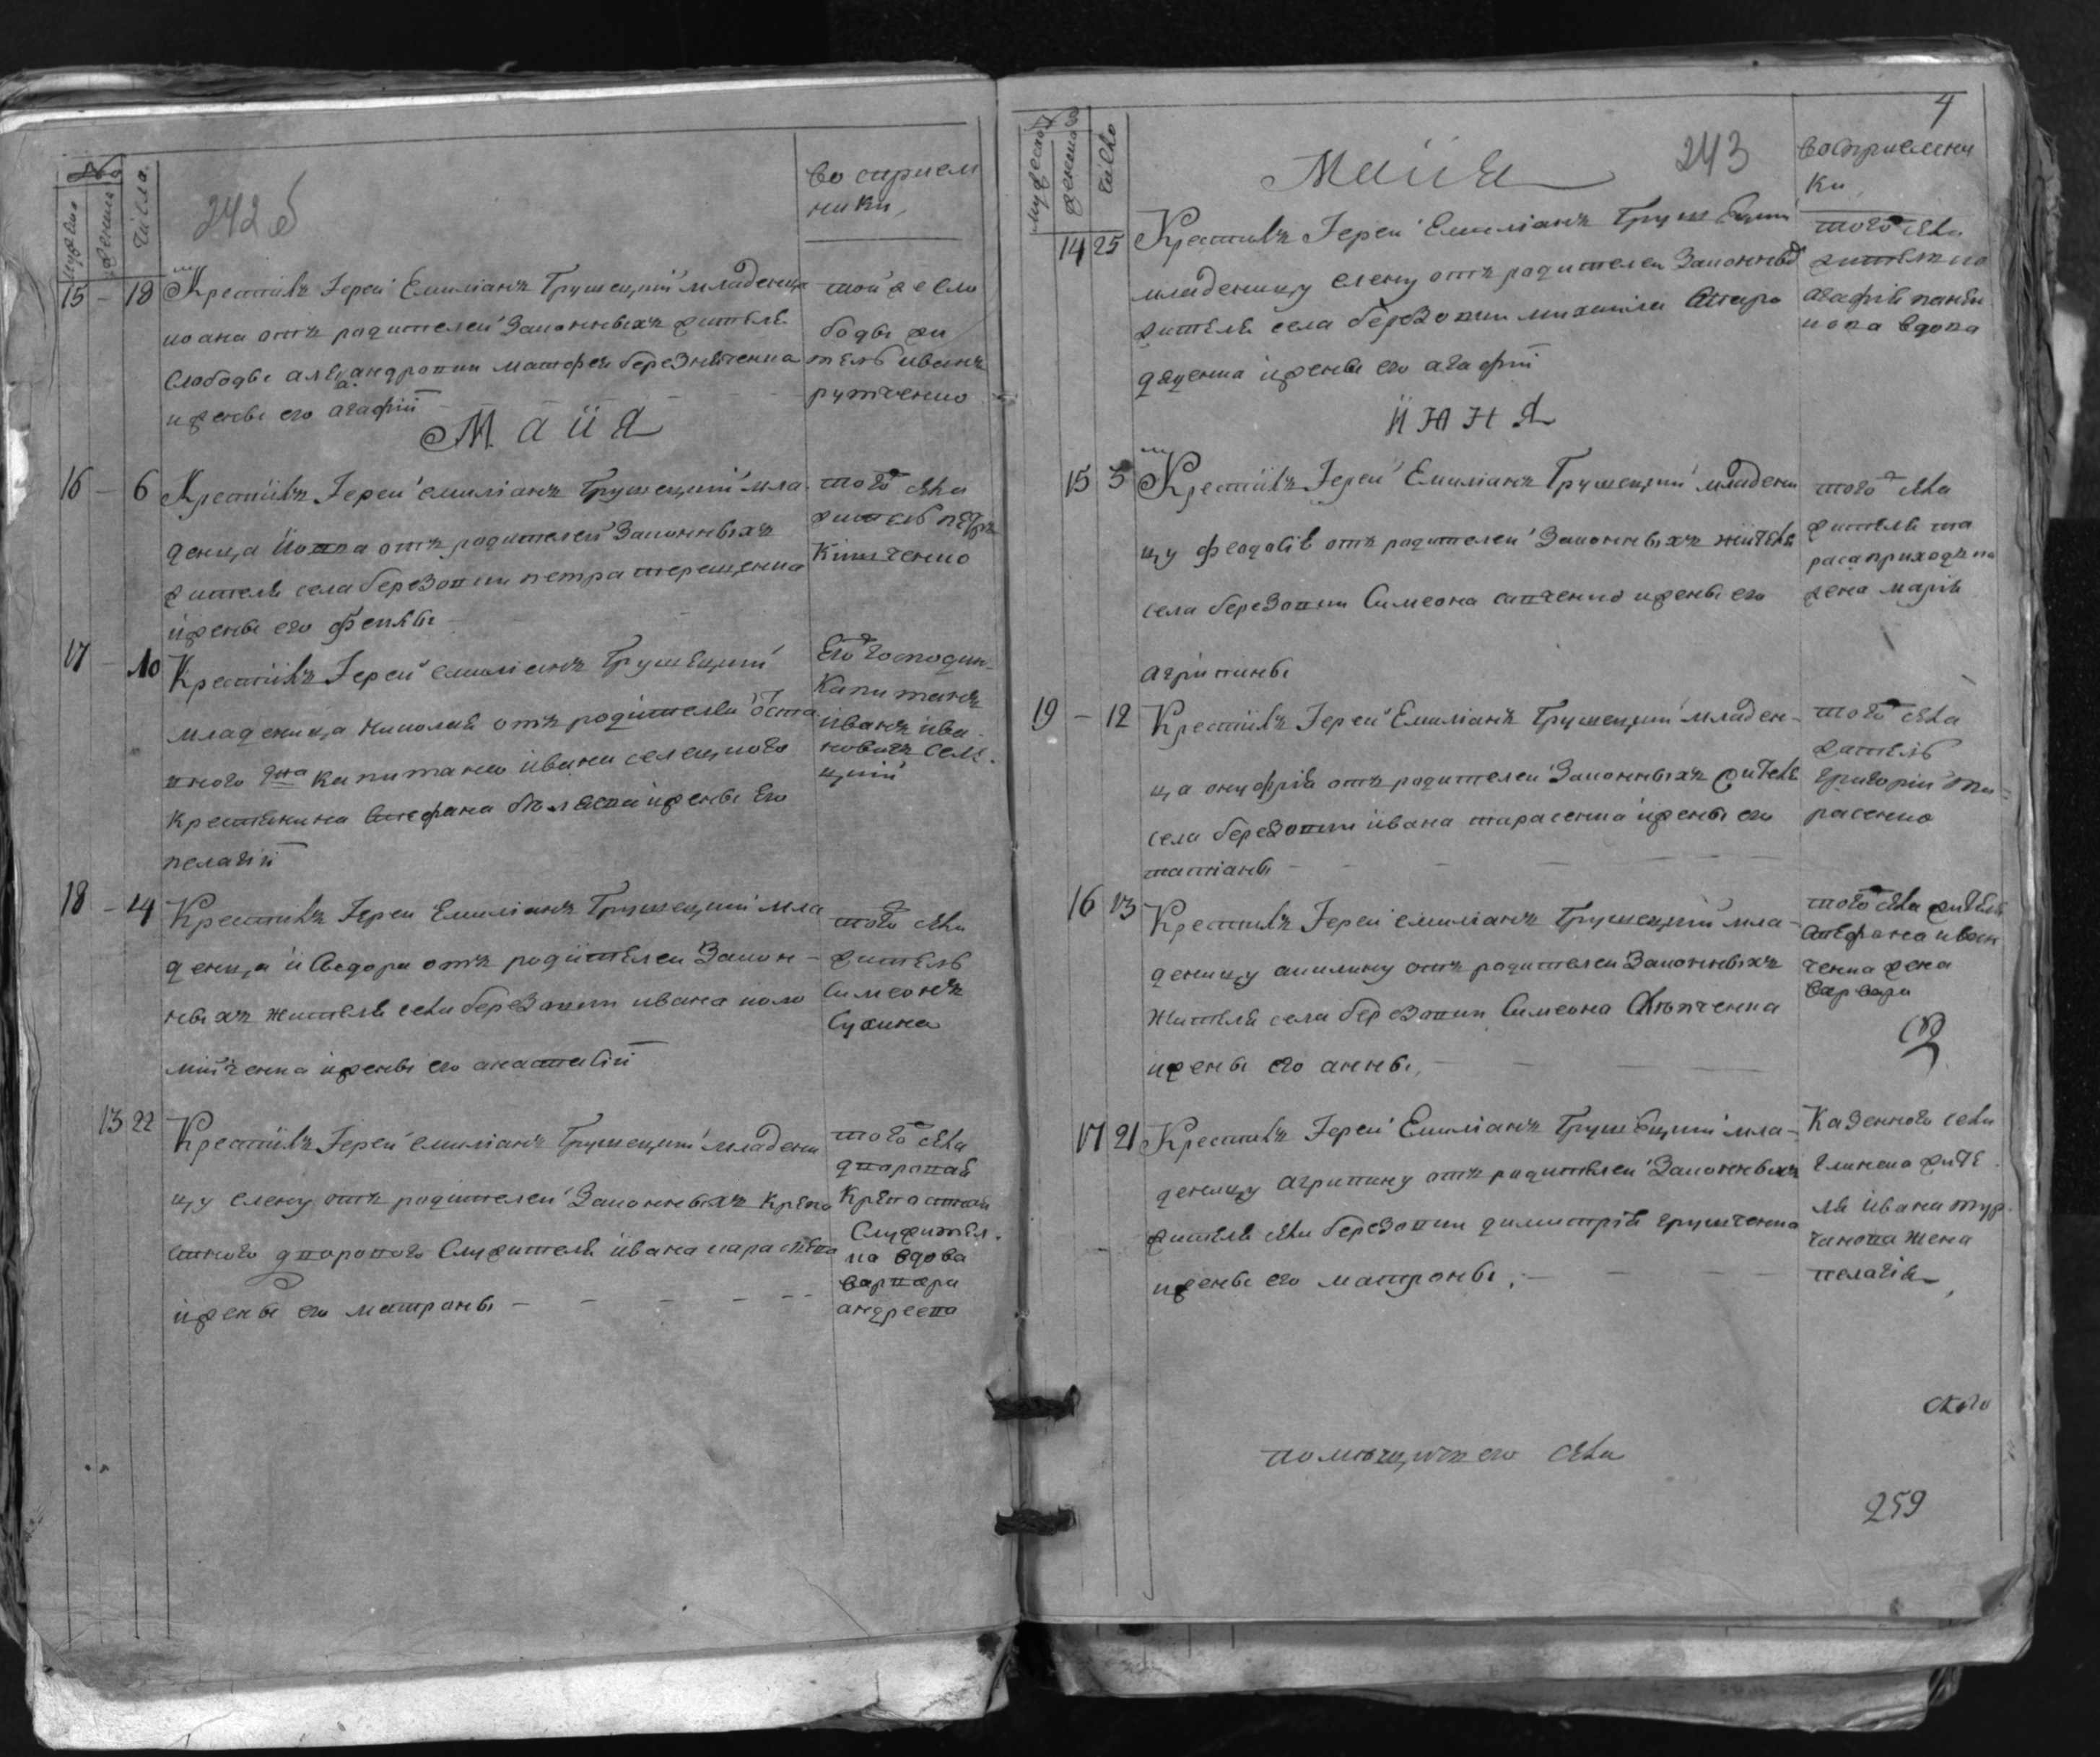 №
мужеска
женска
числа
242 б
восприем
ники,
15 - 18 Крестилъ Іерей Емиліанъ Трушецкій младенца
иоана отъ родителей законныхъ жителя
слободы александровки матфея березниченка
и жены его агафіи
той же сло
боды жи
тель иванъ
рутченко
Маия
16 - 6 Крестилъ Іерей емиліанъ Трушецкій мла
денца иовва отъ родителей законныхъ
жителя села березовки петра терещенка
и жены его феклы
того села
житель петръ
17 - 10 Крестилъ Іерей емиліанъ Трушецкій
младенца николая отъ родителей
капитана ивана селецкого
крестянина стефана и жены его
пелагіи
господин
капитанъ
иванъ ива
новичъ селе
цкий
18 - 14 Крестилъ Іерей Емиліанъ Трушецкій мла
денца исидора отъ родителей закон
ныхъ жителя села березовки ивана коло
мийченка и жены его анастасіи
того села
житель
симеонъ
сухина
13 22 Крестилъ Іерей емиліанъ Трушецкій младени
цу елену отъ родителей законныхъ крепо
стного дворового служителя ивана карасева
и жены его матроны
того села
дворовая
крепостная
служител
ка вдова
варвара
андреева
4
мужеска
женска
число
Маия
243
восприемни
ки,
14 25 Крестилъ Іерей Емиліанъ Трушецкій
младеницу елену отъ родителей законныхъ
жителя села березовки михаила старо
дяденка и жены его агафіи
того села
жителька
агафія
вдова
июня
15 5 Крестилъ Іерей Емиліанъ Трушецкій младени
цу феодосію отъ родителей законныхъ жителя
села березовки симеона савченко и жены его
агрипины
того села
жителя та
раса приходко
жена марія
19 - 12 Крестилъ Іерей Емиліанъ Трушецкій младен
ца онуфрія отъ родителей законныхъ жителя
села березовки ивана тарасенка и жены его
татіаны
того села
житель
григорий та
расенко
16 13 Крестилъ Іерей емиліанъ Трушецкій мла
деницу акилину отъ родителей законныхъ
жителя села березовки симеона
и жены его анны,
того села жителя
стефана иван
ченка жена
варвара
17 21 Крестилъ Іерей Емиліанъ Трушецкій мла
деницу агрипину отъ родителей законныхъ
жителя села березовки димитрія грушченка
и жены его матроны,
казенного села
глинска жите
ля ивана тур
чанова жена
пелагія,
его села
259